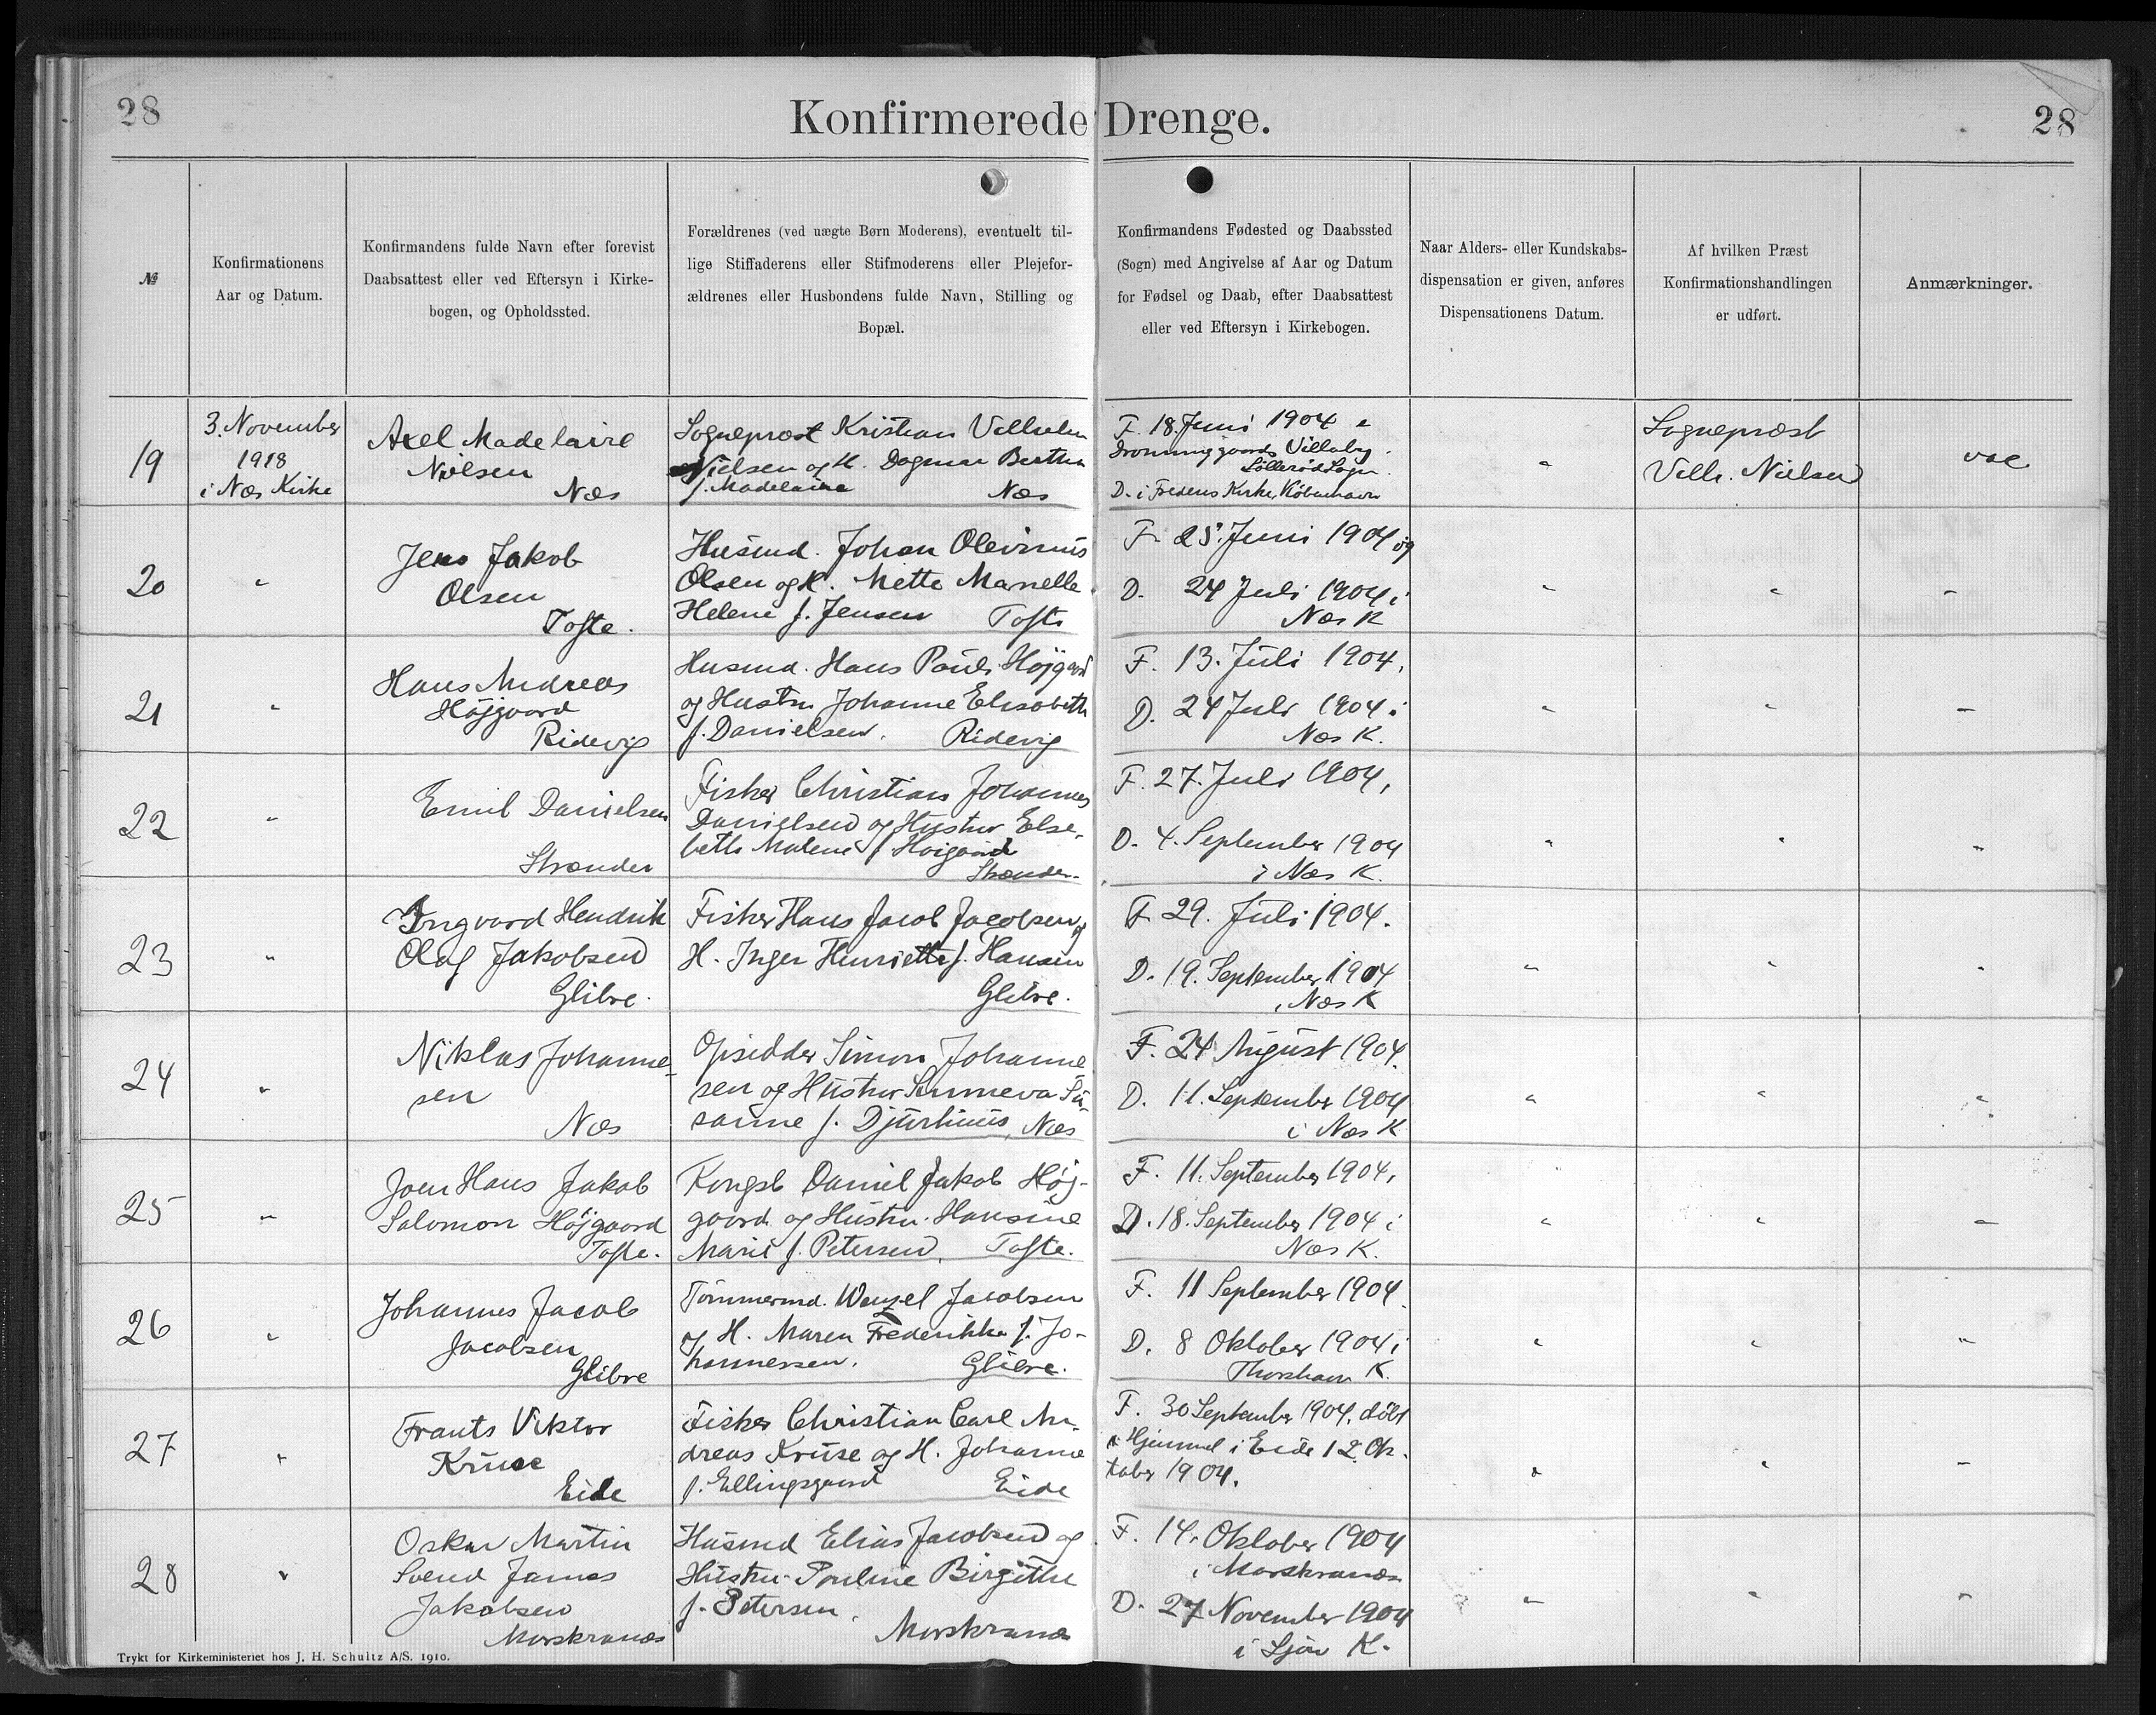 28
Konfirmerede Drenge.
28
№
Konfirmationens
Aar og Datum.
Konfirmandens fulde Navn efter forevist
Daabsattest eller ved Eftersyn i Kirke-
bogen, og Opholdssted.
Forældrenes (ved uægte Børn Moderens), eventuelt til-
lige Stiffaderens eller Stifmoderens eller Plejefor-
ældrenes eller Husbondens fulde Navn, Stilling og
Bopæl.
Konfirmandens Fødested og Daabssted
(Sogn) med Angivelse af Aar og Datum
for Fødsel og Daab, efter Daabsattest
eller ved Eftersyn i Kirkebogen.
Naar Alders- eller Kundskabs-
dispensation er given, anføres
Dispensationens Datum.
Af hvilken Præst
Konfirmationshandlingen
er udført.
Anmærkninger.
19
3. November
1918
i Næs Kirke
Axel Madelaire
Nielsen
Næs
Sognepræst Kristian Vilhelm
Nielsen og H. Dagmar Bertha
f. Madelaire Næs
F. 18. Juni 1904 i
Dronninggaards Villaby.
Søllerød Sogn.
D. i Fredens Kirke, København
"
Sognepræst
Vilh. Nielsen
vac
20
"
Jens Jakob
Olsen
Tofte.
Husmd. Johan Olevinus
Olsen og H. Mette Marselle
Helene f. Jensen Tofte
F. 25. Juni 1904 og
D. 24 Juli 1904 i
Næs K
"
"
"
21
"
Hans Andreas
Højgaard
Ridevig
Husmd. Hans Pauli Højgaard
og Hustru Johanne Elisabeth
f. Danielsen. Ridevig
F. 13. Juli 1904,
D. 24 Juli 1904 i
Næs K.
"
"
"
22
"
Emil Danielsen
Strænder
Fisker Christian Johannes
Danielsen og Hustru Else-
beth Malene f. Høigaard
Strænder.
F. 27. Juli 1904,
D. 4. September 1904
i Næs K.
"
"
"
23
"
Ingvard Hendrik
Olaf Jakobsen
Glibre.
Fisker Hans Jacob Jacobsen og
H. Inger Henriette f. Hansen
Glibre.
F. 29. Juli 1904.
D. 19. September 1904
i Næs K
"
"
"
24
"
Niklas Johanne-
sen
Næs
Opsidder Simon Johanne
sen og Hustru Sunneva Su-
sanne f. Djurhuus, Næs
F. 24 August 1904.
D. 11. September 1904
i Næs K
"
"
"
25
"
Joen Hans Jakob
Salomon Højgaard
Tofte.
Kongsb Daniel Jakob Høj-
gaard og Hustru Hansine
Marie f. Petersen, Tofte.
F. 11. September 1904,
D. 18. September 1904 i
Næs K.
"
"
"
26
"
Johannes Jacob
Jacobsen
Glibre
Tømmermd. Wenzel Jacobsen
og H. Maren Frederikke f. Jo-
hannessen. Glibre.
F. 11 September 1904
D. 8 Oktober 1904 i
Thorshavn K.
"
"
"
27
"
Frants Viktor
Kruse
Eide
Fisker Christian Carl An-
dreas Kruse og H. Johanne
f. Ellingsgaard Eide
F. 30 September 1904, døbt
i Hjemmet i Eide 12 Ok-
tober 1904.
"
"
"
28
"
Oskar Martin
Svend James
Jakobsen
Morskranæs
Husmd Elias Jacobsen og
Hustru Pouline Birgithe
f. Petersen.
Morskranæs
F. 14. Oktober 1904
i Morskranæs
D. 27 November 1904
i Sjøv K.
"
"
"
Trykt for Kirkeministeriet hos J. H. Schultz A/S. 1910.